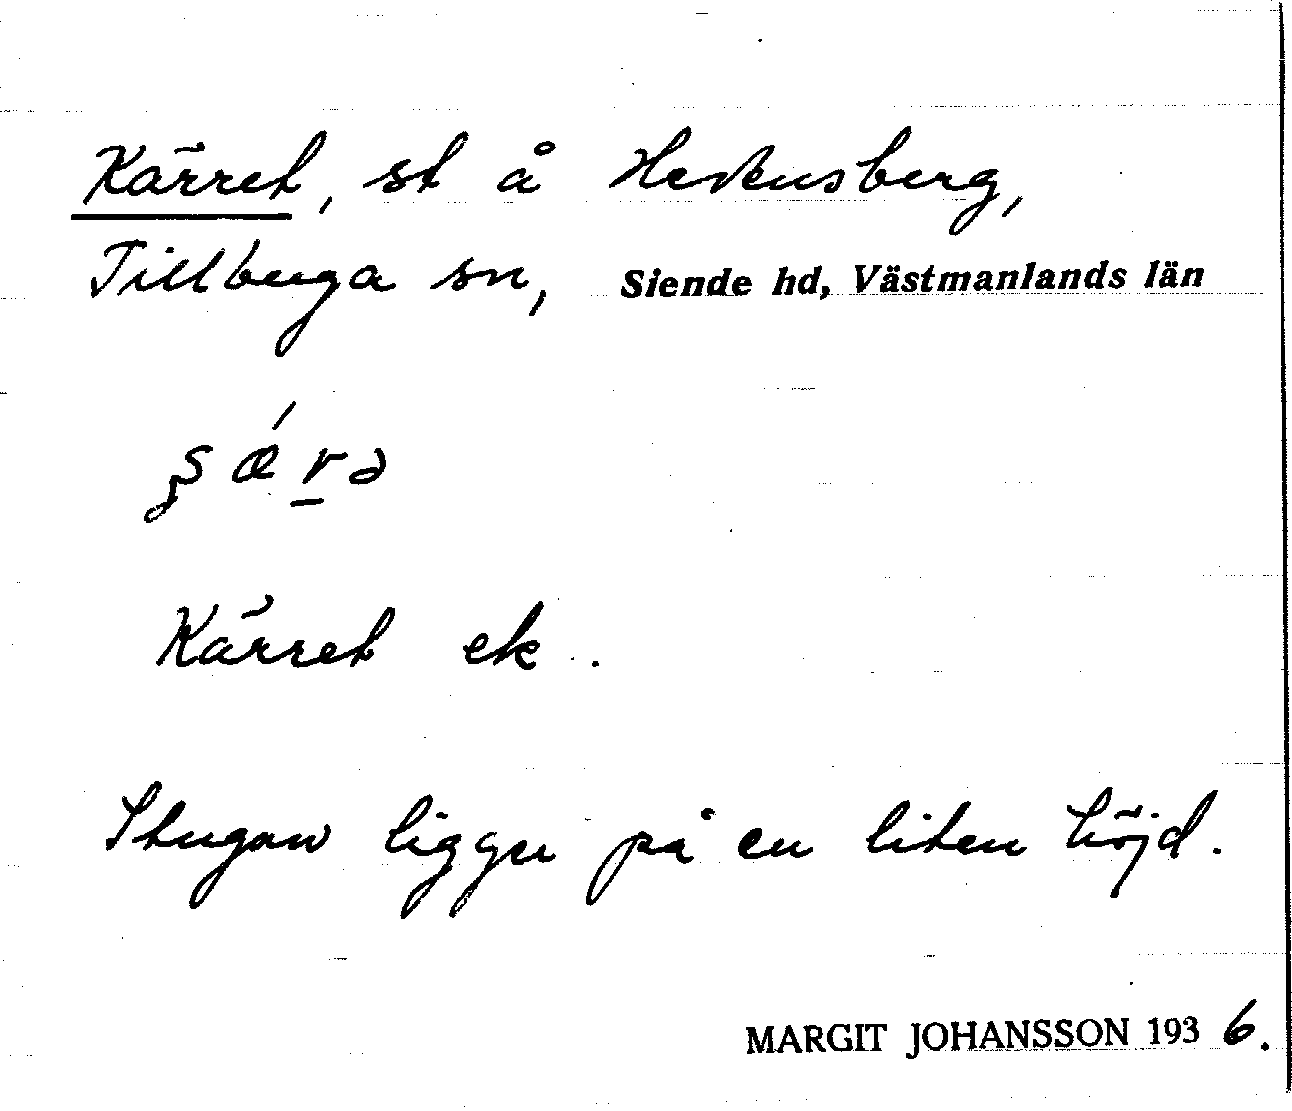 Kärret, st å Hertensberg,
Tillberga sn, Siende hd, Västmanlands län
ʂǽrə
Kärret ek.
Stugan ligger på en liten höjd.
MARGIT JOHANSSON 1936.